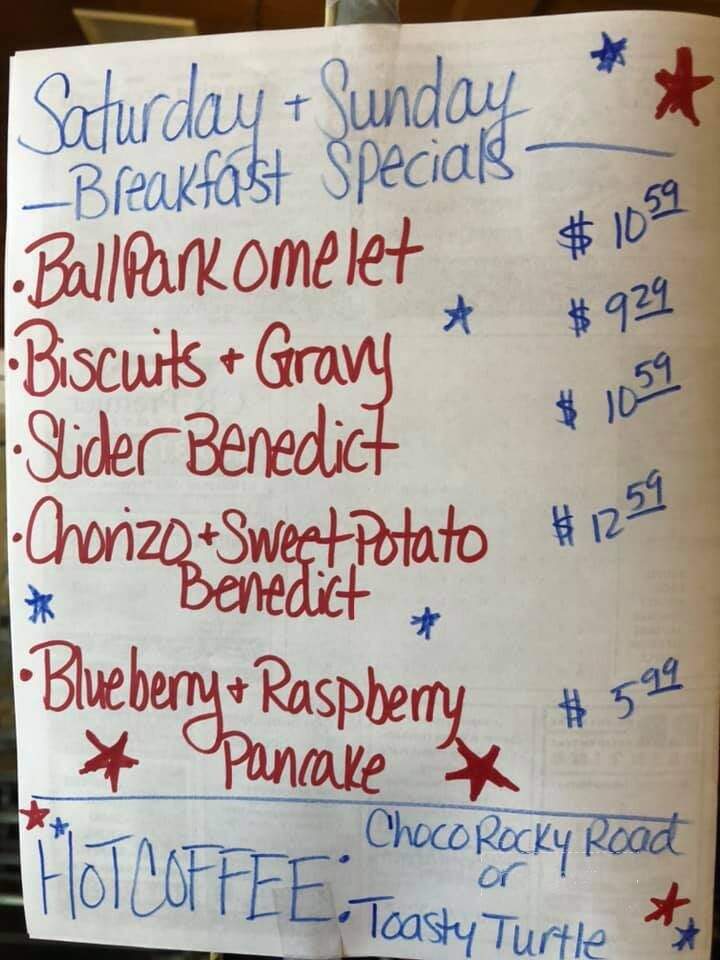 Saturday + Sunday
– Breakfast Specials –
• BallPark omelet $ 10 59
• Biscuits + Gravy $ 9 29
• Slider Benedict $ 10 59
• Chorizo + Sweet Potato $ 12 59
Benedict
• Blueberry + Raspberry $ 5 99
Pancake
HOT COFFEE: Choco Rocky Road
or
Toasty Turtle